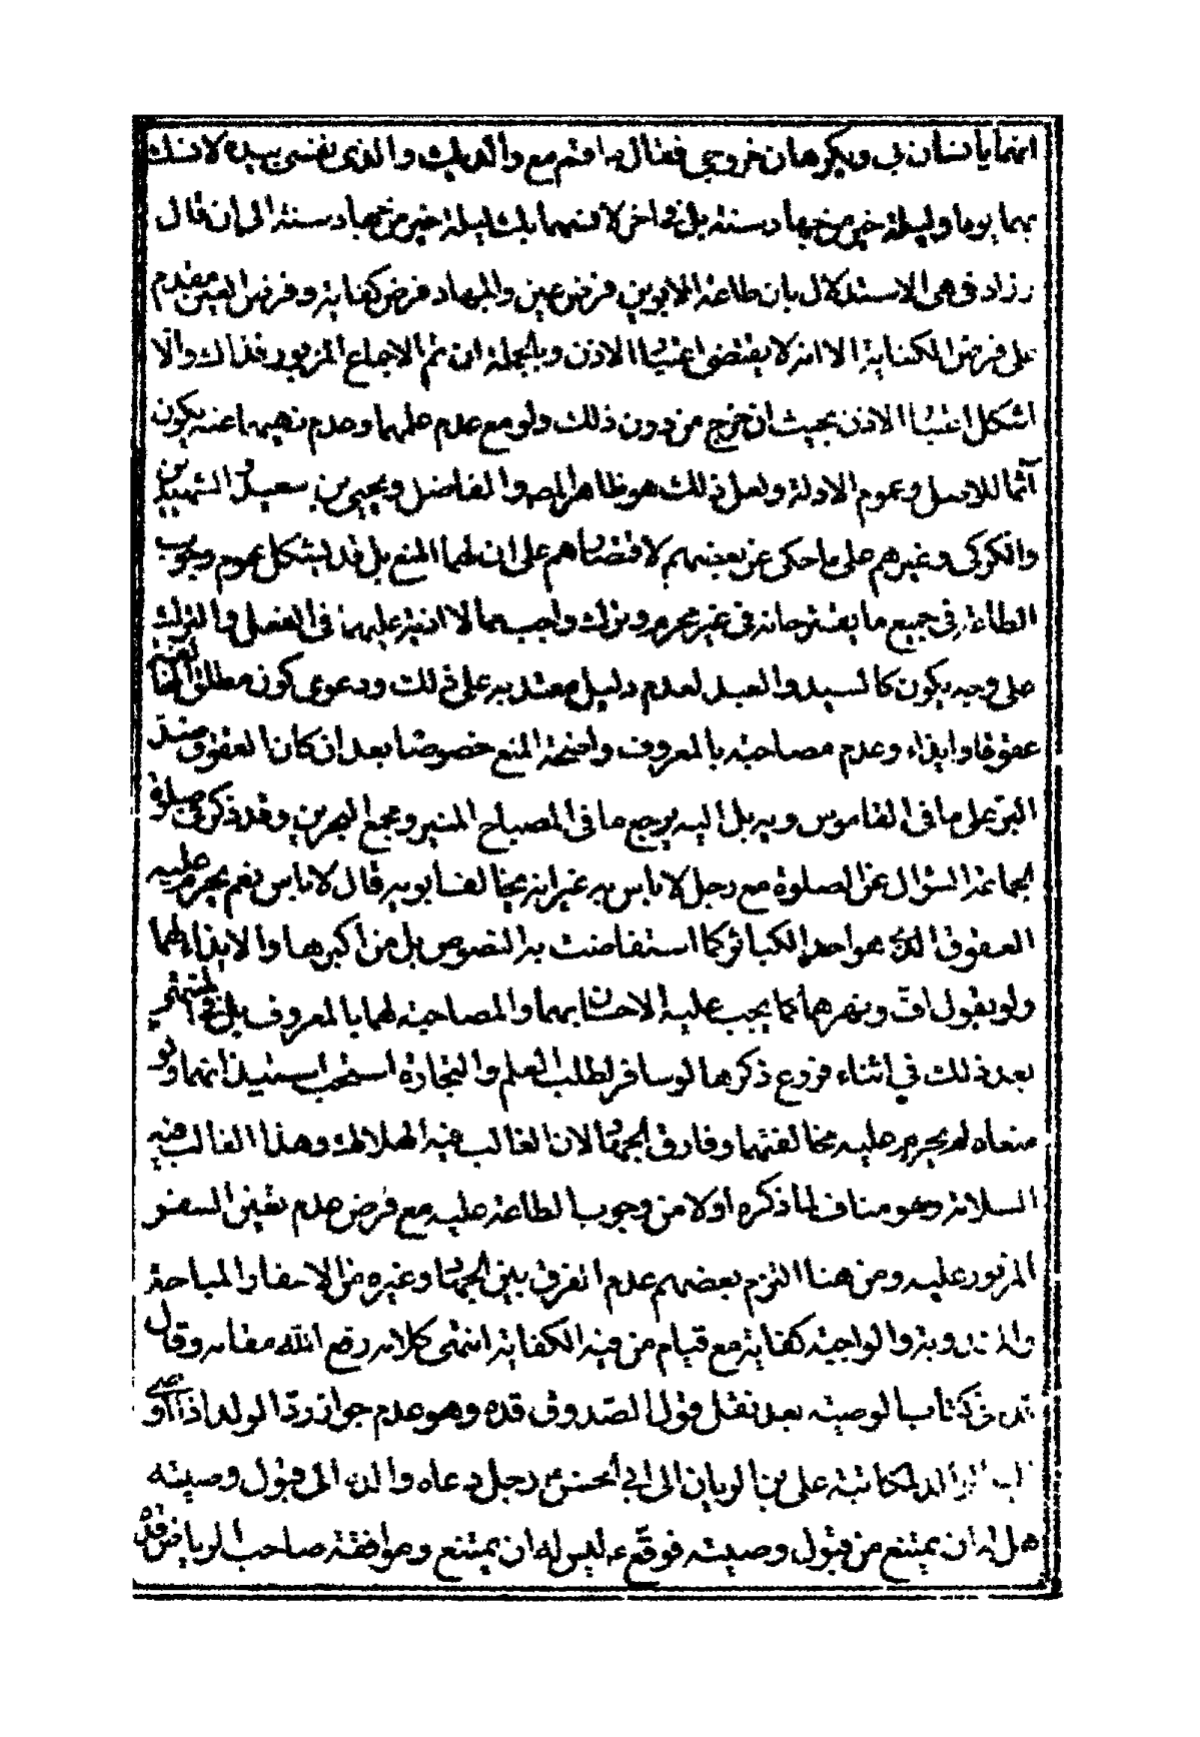 انهما يانسان بي ويكرهان خروجي فقال ص اقم مع والديك والذي نفسي بيده لانسك
بهما يوما وليلة خير من جهاد سنة بل في اخر لانسهما بك ليلة خير من جهاد سنة الى ان قال
وزاد في هى الاستدلال بان طاعة الابوين فرض عين والجهاد فرض كفاية وفرض العين مقدم
على فرض الكفاية الا انه لا يقتضى اعتبار الاذن وبالجملة ان تم الاجماع المزبور فذاك والا
اشكل اعتبار الاذن بحيث ان خرج من دون ذلك ولو مع عدم علمهما وعدم نهيهما عنه يكون
آثما للاصل وعموم الادلة ولعل ذلك هو ظاهر المص والفاضل ويحيى بن سعيد والشهيدين
والكركي وغيرهم على ما حكى عن بعضهم لاقتصارهم على ان لهما المنع بل قد يشكل عموم وجوب
الطاعة في جميع ما يقترحانه في غير محرم وترك واجب مما لا اذية عليهما في الفعل والترك
على وجه يكون كالسيد والعبد لعدم دليل معتد به على ذلك ودعوى كون مطلق المخالفة
عقوقا وايذاء وعدم مصاحبة بالمعروف واضحة المنع خصوصا بعد ان كان العقوق ضد
البر على ما في القاموس وبه بل اليه يرجع ما في المصباح المنير ومجمع البحرين وقد ذكر في صلوة
الجماعة السؤال عن الصلوة مع رجل لا باس به غير انه يخالف ابويه قال لا باس نعم يحرم عليه
العقوق الذي هو احد الكبائر كما استفاضت به النصوص بل من اكبرها والايذاء لهما
ولو بقول اف ونهرهما كما يجب عليه الاحسان بهما والمصاحبة لهما بالمعروف بل في المنتهى
بعد ذلك في اثناء فروع ذكرها لو سافر لطلب العلم والتجارة استحب استيذانهما ولو
منعاه لم يحرم عليه مخالفتهما وفارق الجهاد لان الغالب فيه الهلاك وهذا الغالب فيه
السلامة وهو مناف لما ذكره اولا من وجوب الطاعة عليه مع فرض عدم تعين السفر
المزبور عليه ومن هنا التزم بعضهم عدم الفرق بين الجهاد وغيره من الاسفار المباحة
والمندوبة والواجبة كفاية مع قيام من فيه الكفاية انتهى كلامه رفع الله مقامه وقال
قده في كتاب الوصية بعد نقل قول الصدوق قده وهو عدم جواز رد الولد اذا
لمكاتبة على بن الريان الى ابي الحسن ع رجل دعاه والده الى قبول وصيته
هل له ان يمتنع من قبول وصيته فوقع ع ليس له ان يمتنع وموافقة صاحب الرياض قده